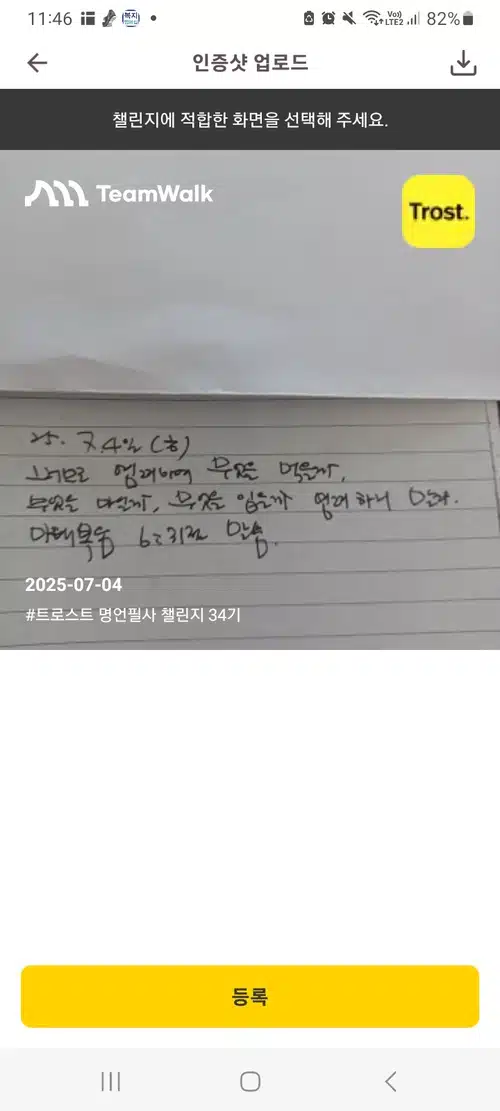 11:46
복지
Vo))
LTE2
82%
인증샷 업로드
챌린지에 적합한 화면을 선택해 주세요.
TeamWalk
Trost.
25. 7.4일 (금)
그러므로 염려하여 무엇을 먹을까,
무엇을 마실까, 무엇을 입을까 염려 하지 말라.
마태복음 6:31절 말씀.
2025-07-04
#트로스트 명언필사 챌린지 34기
등록